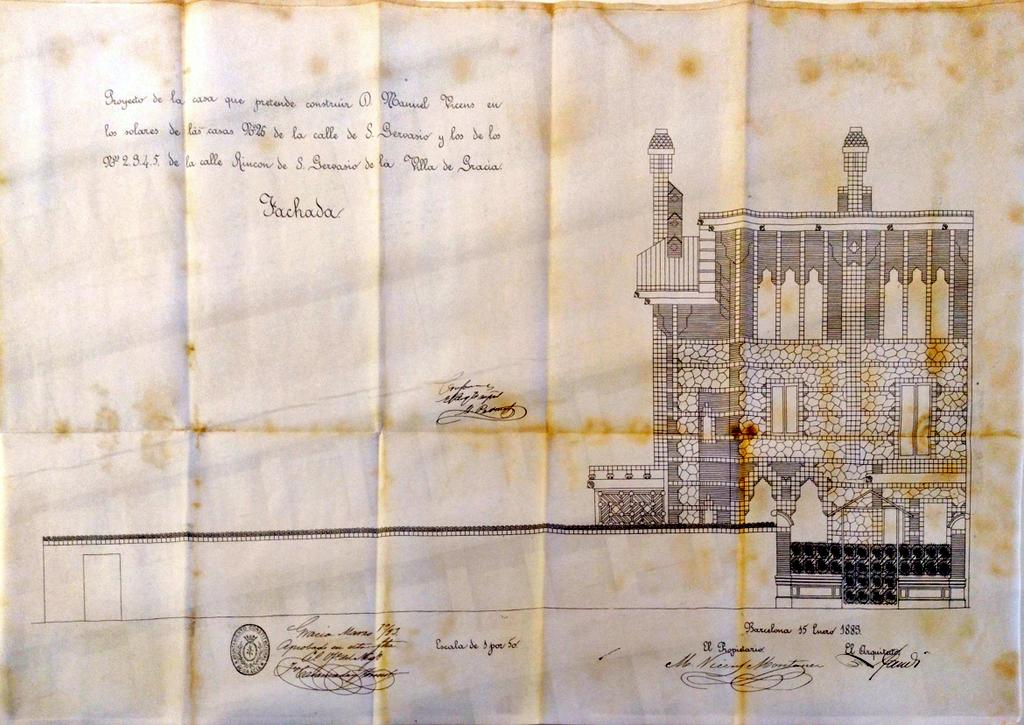 Proyecto de la casa que pretende construir D. Manuel Vicens en
los solares de las casas Nº 26 de la calle de S. Gervasio y los de los
Nº 2.3.4.5. de la calle Rincon de S. Gervasio de la Villa de Gracia.
Fachada.
Barcelona 15 Enero 1883.
Gracia Marzo
Aprobado en
Escala de 1 por 50
El Propietario
El Arquitecto
M. Vicens Montaner
Gaudí